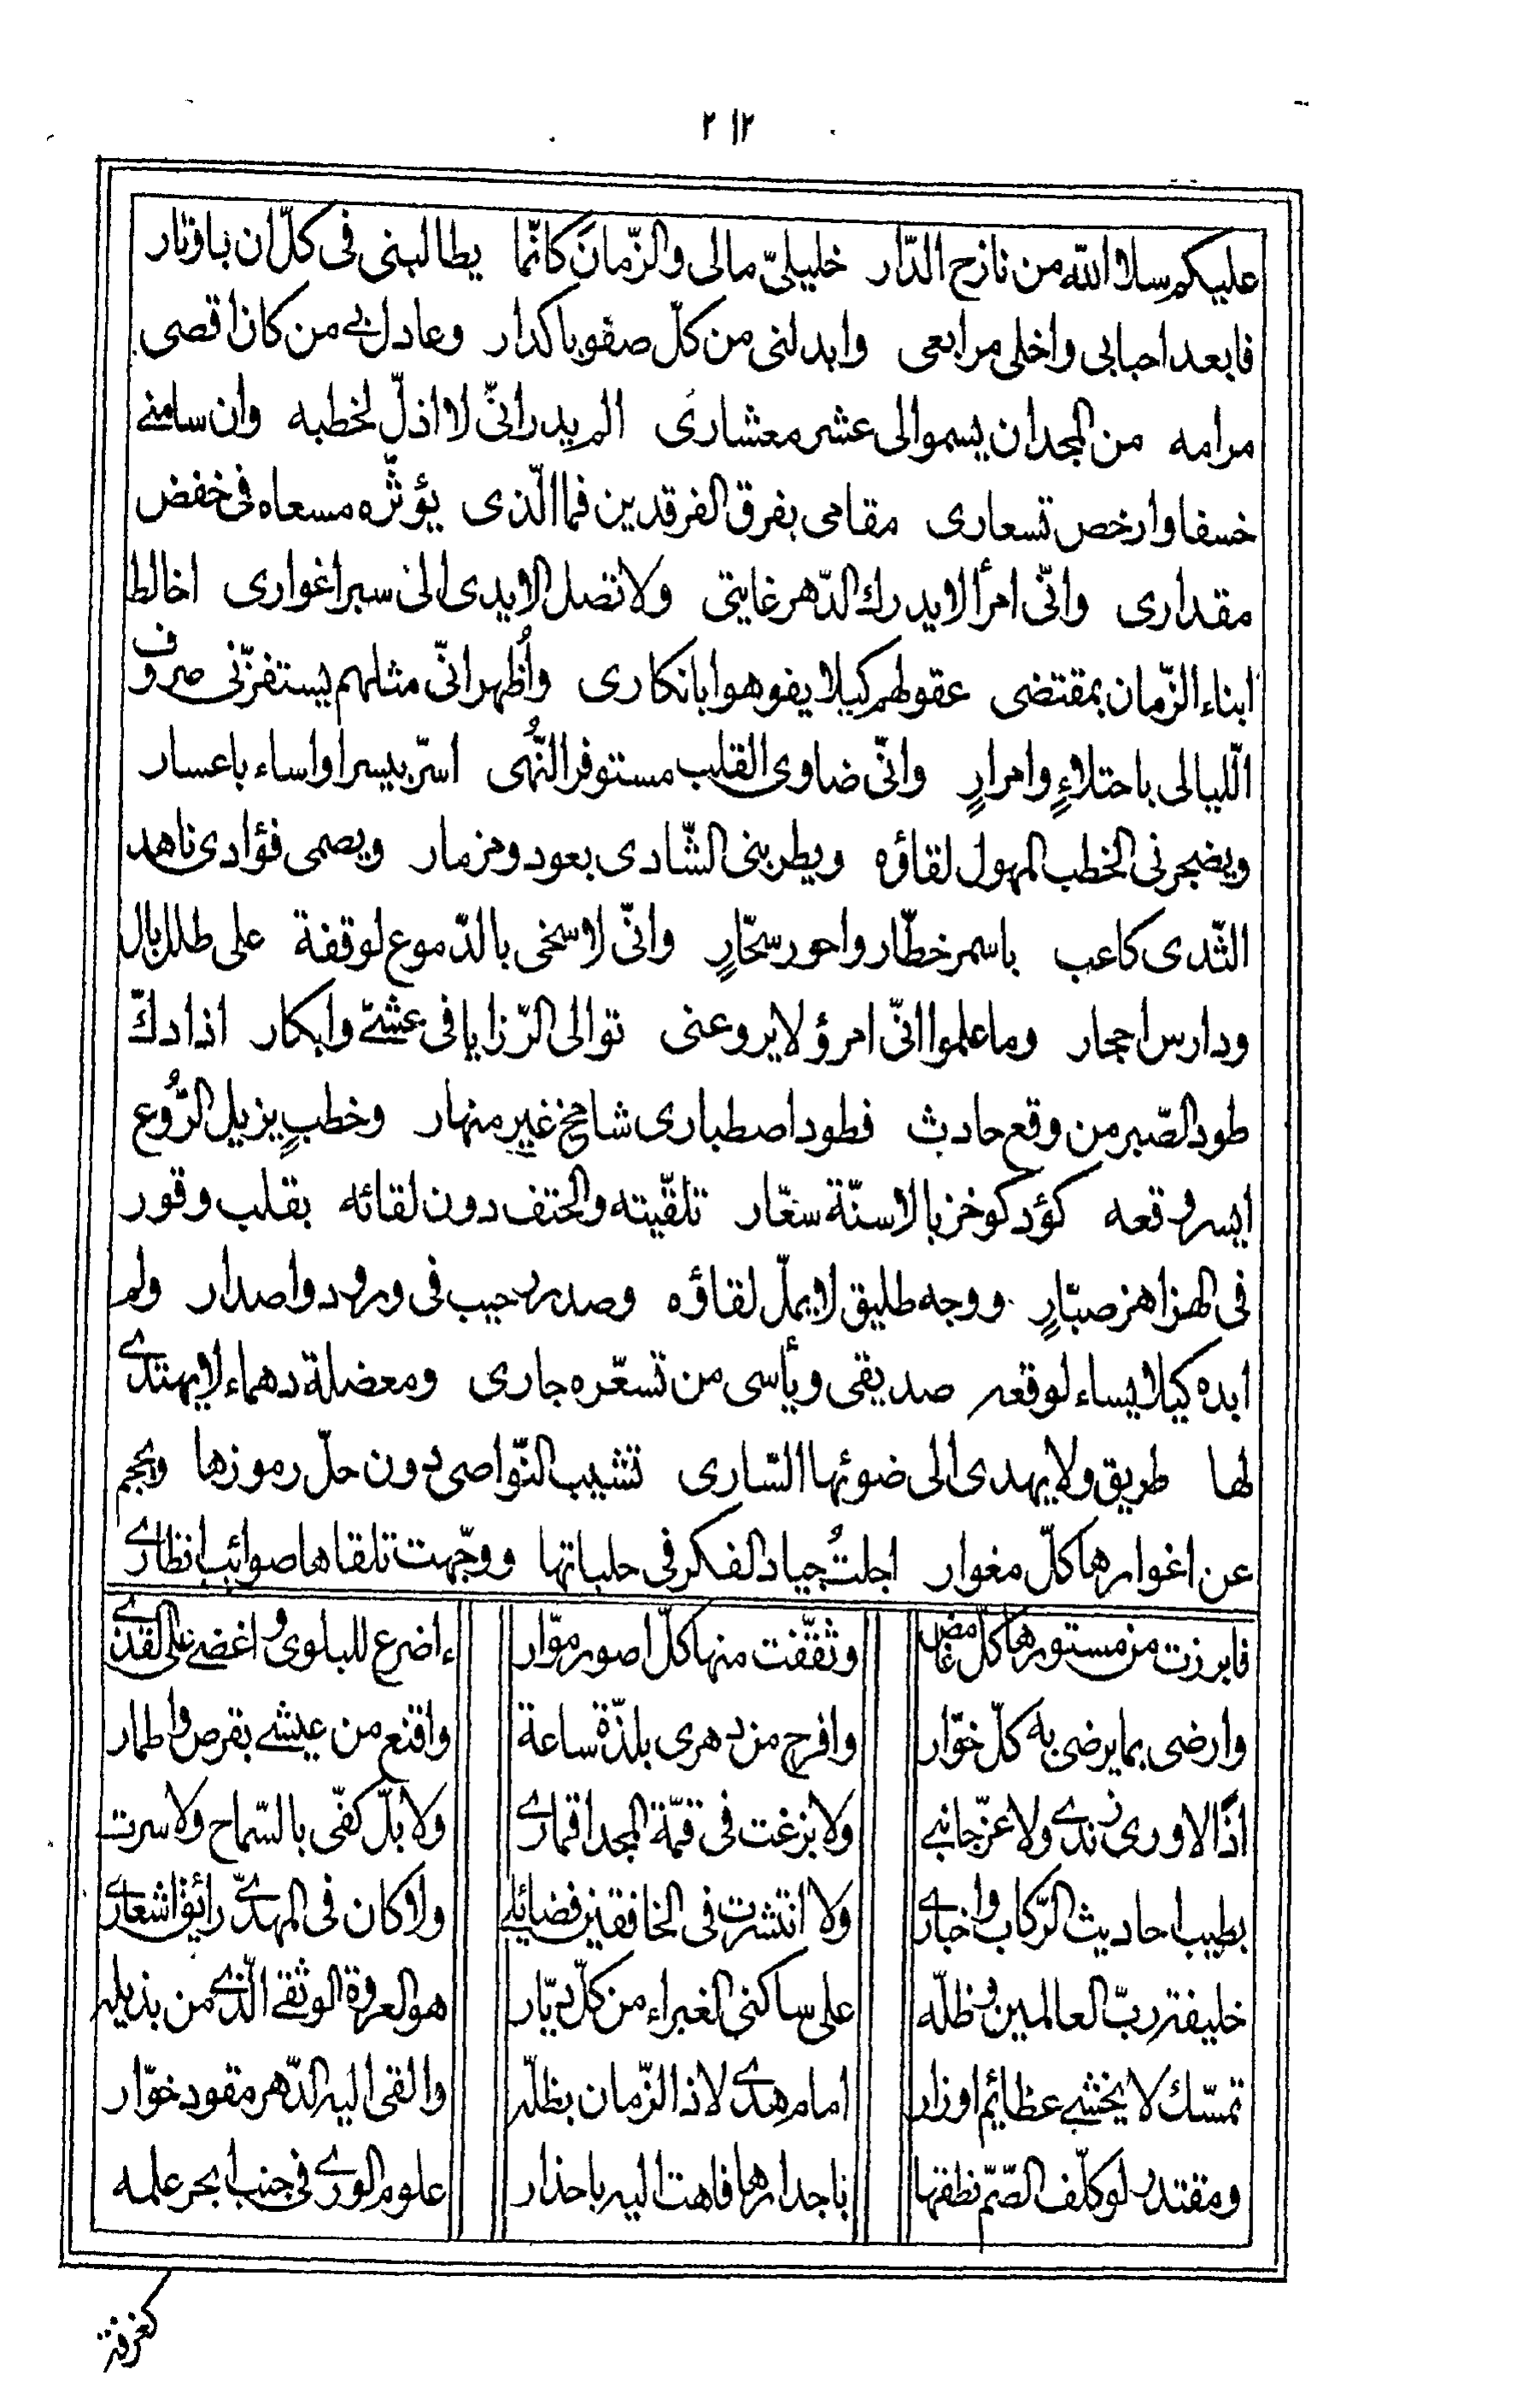 ٢١٢
عليكم سلام الله من نازح الدّار خليليّ مالى والزّمانَ كانّما يطالبنى فى كلّ ان باوتار
فابعد احبابى واخلى مرابعى وابدلنى من كلّ صفو باكدار وعادل بى من كان اقصى
مرامه من المجد ان يسموالى عشر معشارى الم يدر انّى لا اذلّ لخطبه وان سامنے
خسفا وارخص تسعارى مقامى بفرق الفرقدين فما الّذى يؤثّره مسعاه فى خفض
مقدارى وانّى امرأ لا يدرك الدّهر غايتى ولا تصل الايدى الى سبر اغوارى اخالط
ابناء الزّمان بمقتضى عقولهم كيلا يفوهوا بانكارى واُظهر انّى مثلهم يستفزّنى صروف
الّليالى باحتلاءٍ وامرارٍ وانّى ضاوى القلب مستوفر النُّهى اسرّ بيسر او اساء باعسار
ويضجرنى الخطب المهول لقاؤه ويطربنى الشّادى بعود ومزمار ويصمى فؤادى ناهد
الثّدى كاعب باسمر خطّار واحور سحّارٍ وانّى لا سخى بالدّموع لوقفة على طلل بال
ودارس احجار وما علموا انّى امرؤ لا يروعنى توالى الرّزايا فى عشىّ وابكار اذا دكّ
طود الصّبر من وقع حادث فطود اصطبارى شامخ غير منهار وخطبٍ يزيل الرُّوع
ايسر وقعه كؤد كوخز بالاسنّة سعّار تلقّيته والحتف دون لقائه بقلب وقور
فى الهزاهز صبّارٍ ووجه طليق لا يملّ لقاؤه وصدر رحيب فى ورود واصدار ولم
ابده كيلا يساء لوقعه صديقى ويأسى من تسعّره جارى ومعضلة دهماء لا يهتدے
لها طريق ولا يهدى الى ضوئها السّارى تشيب النّواصى دون حلّ رموزها ويحجم
عن اغوارها كلّ مغوار اجلتُ جياد الفكر فى حلباتها ووجّهت تلقاها صوائب انظارے
فابرزت من مستورها كلّ غامض وثقّفت منها كلّ اصور موّار ءاضرع للبلوى واغضے على القذى
وارضى بما يرضى به كلّ خوّار وافرح من دهرى بلذّة ساعة واقنع من عيشے بقرص واطمار
اذًا لا ورى زندے ولا عزّ جانبے ولا بزغت فى قمّة المجد اقمارے ولا بلّ كفّى بالسّماح ولا سرت
بطيب احاديث الرّكاب واخبارے ولا انتشرت فى الخافقين فضائلے ولا كان فى المهدىّ رائق اشعارے
خليفة ربّ العالمين وظلّه على ساكنى الغبراء من كلّ ديّار هو العروة الوثقى الّذے من بذيله
تمسّك لا يخشے عظائم اوزار امام هدے لاذ الزّمان بظلّه والقى اليه الدّهر مقود خوّار
ومقتدر لو كلّف الصّمّ نطقها باجدارها فاهت اليه باحذار علوم الورے فى جنب ابحر علمه
كغرفة